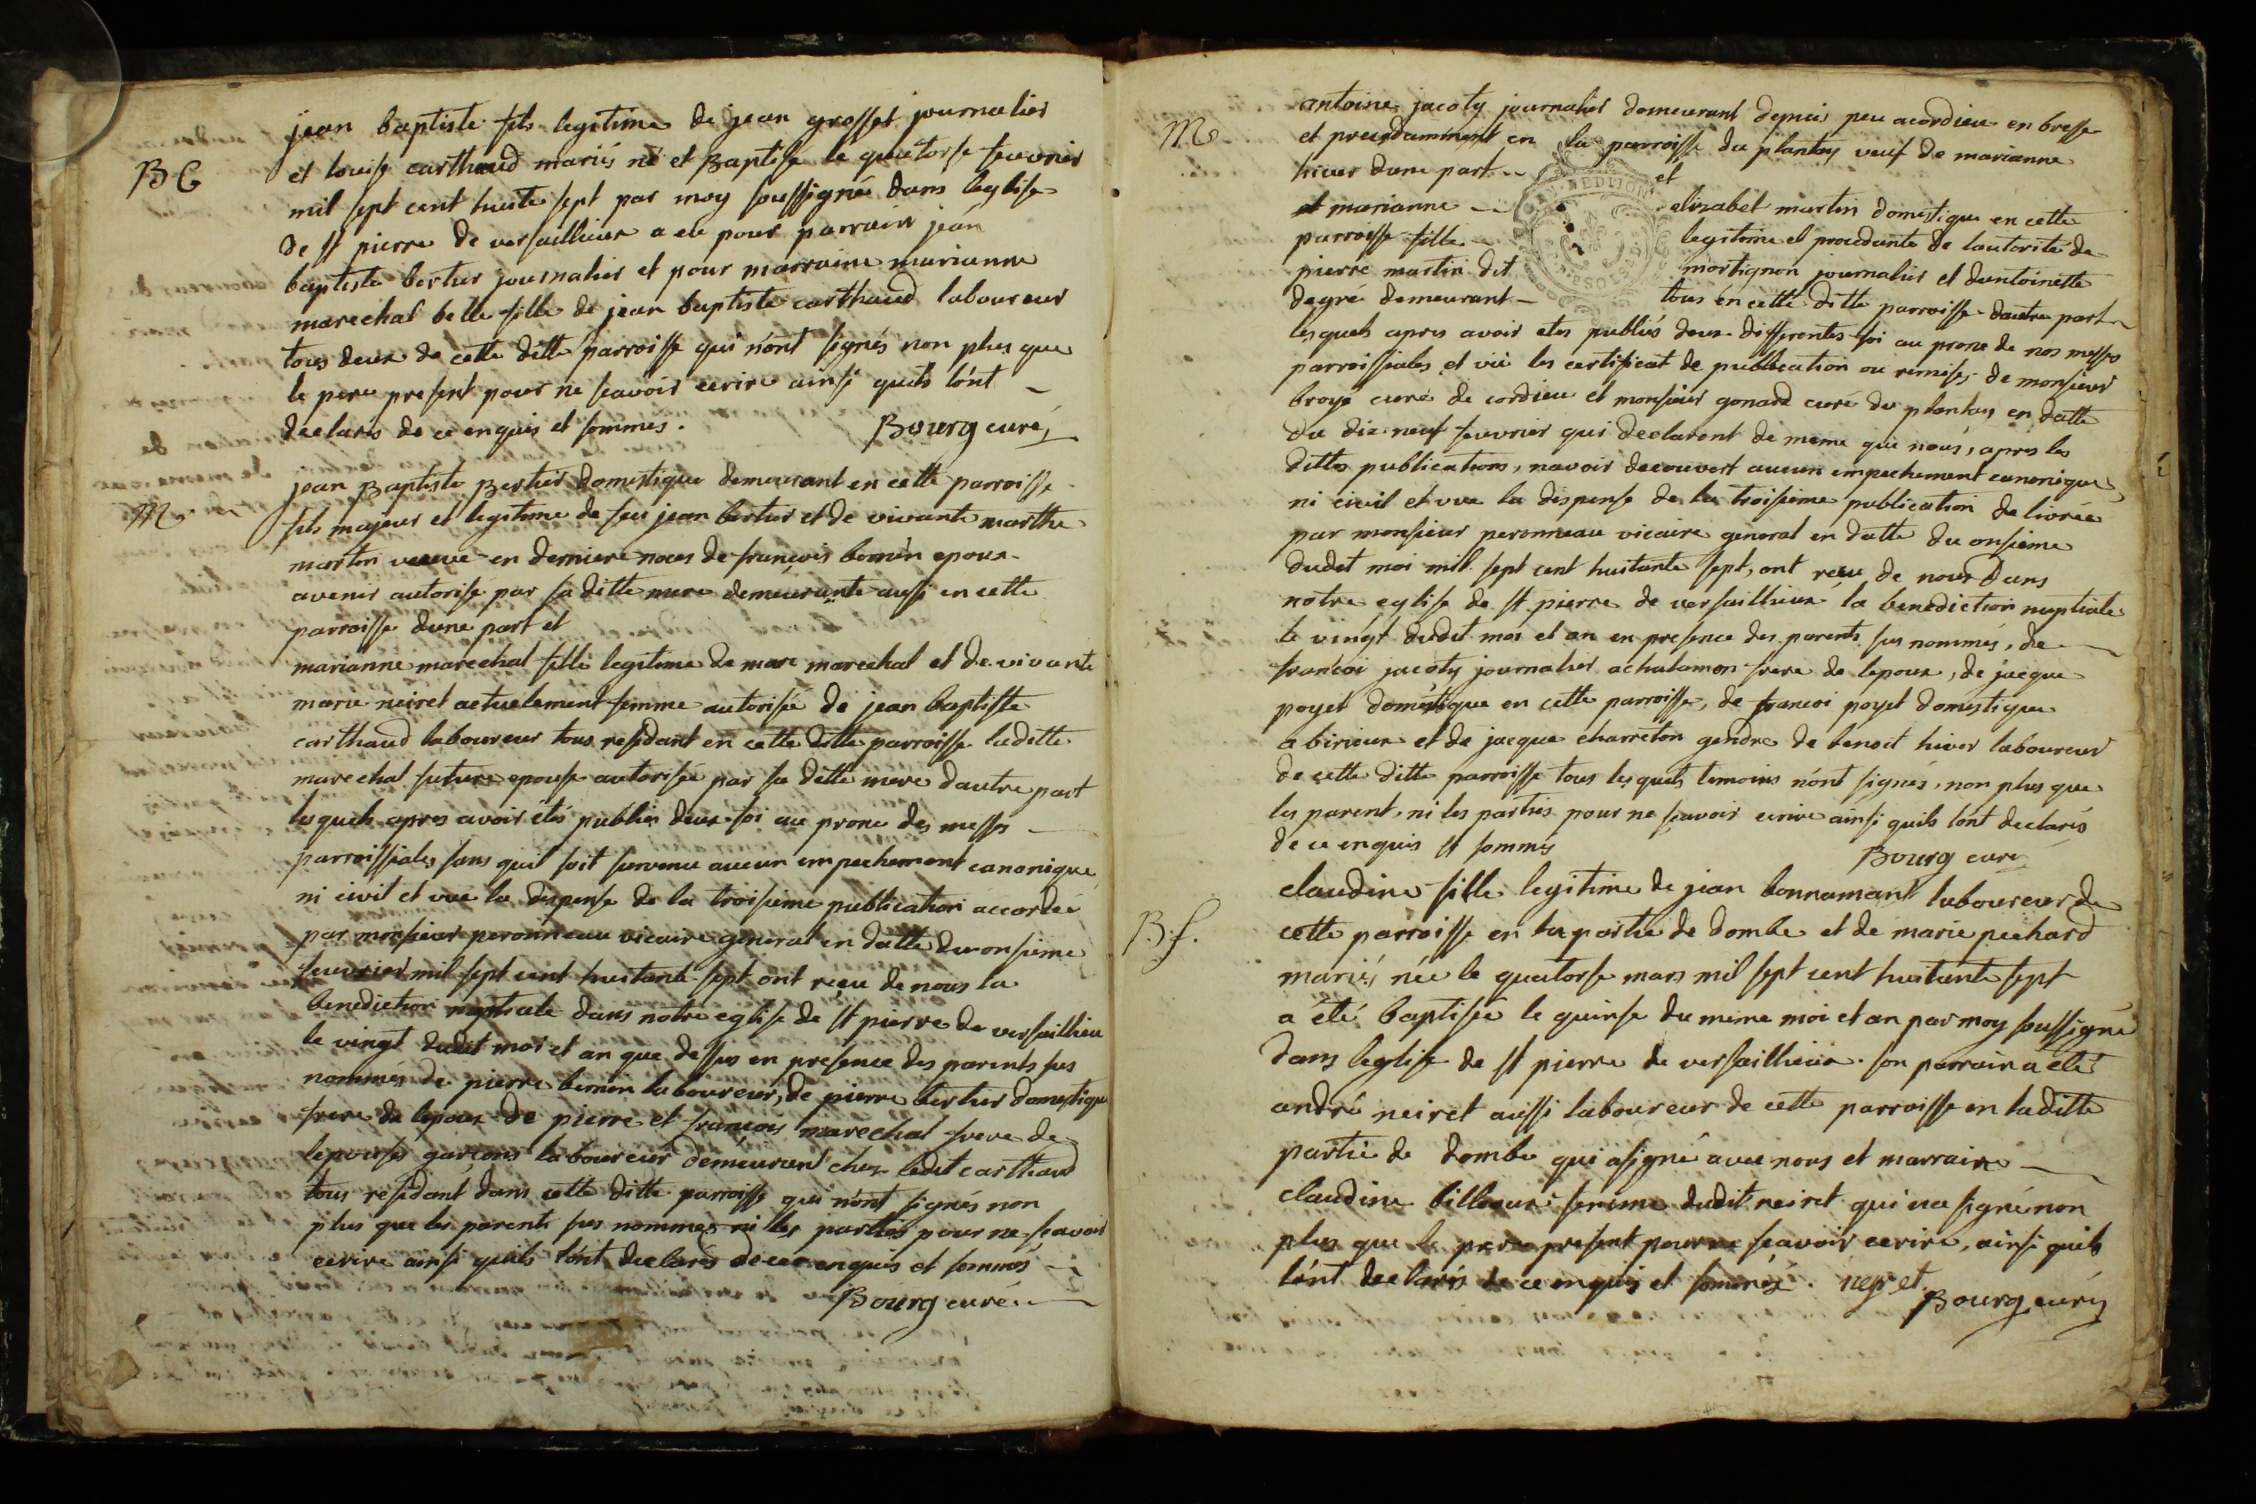 jean baptiste fils legitime de jean grosset journalier
B G
et louise carthaud mariés né et Baptisé le quatorse feuvrier
mil sept cent huite sept par moy soussigné dans leglise
de st pierre de versaillieux a ete pour parrain jean
baptiste bertier journalier et pour marraine marianne
marechal belle fille de jean baptiste carthaud laboureur
tous deux de cette ditte parroisse qui n'ont signés non plus que
le pere present pour ne scavoir ecrire ainsi quils lont
declarés de ce enquis et sommés.
Bourg curé
jean Baptiste Bertier domestique demeurant en cette parroisse
M.
fils majeur et legitime de feu jean bertier et de vivante marthe
martin veuve en derniere noces de francois bernin epoux
avenir autorisé par sa ditte mere demeurante aussi en cette
parroisse dune part et
marianne marechal fille legitime de marc marechal et de vivante
marie neiret actuelement femme autorisée de jean baptiste
carthaud laboureur tous residant en cette ditte parroisse laditte
marechal future epouse autorisée par sa ditte mere dautre part
lesquels apres avoir étés publiés deux foi au prone des messes
parroissiales sans quil soit survenu aucun empechement canonique
ni civil et vue la dispense de la troisieme publication accordée
par monsieur peronneau vicaire general en datte du onsieme
feuvrier mil sept cent huitante sept ont reçu de nous la
benediction nuptiale dans notre eglise de st pierre de versaillieu
le vingt dudit moi et an que dessus en presence des parents sus
nommes de pierre bernin laboureur, de pierre bertier domestique
frere de lepoux de pierre et françois marechal frere de
lepouse garcons laboureur demeurant chez ledit carthaud
tous residant dans cette ditte parroisse qui n'ont signés non
plus que les parents sus nommes ni les parties pour ne scavoir
ecrire ainsi quils lont declarés de ce enquis et sommés
Bourg curé
antoine jacoty journalier demeurant depuis peu acordieu en bresse
M
et precedamment en la parroisse du plantay veuf de marianne
hiver dune part et
et marianne elizabet martin domestique en cette
parroisse fille legitime et procedante de lautorité de
pierre martin dit mortignon journalier et dantoinette
degré demeurant tous en cette ditte parroisse dautre part
lesquels apres avoir etes publiés deux differentes foi au prone de nos messes
parroissiales et vu les certificat de publication ou remises de monsieur
broye curé de cordieu et monsieur gonard curé du plantay en datte
du dix neuf feuvrier qui declarent de meme que nous, apres les
dittes publications, navoir decouvert aucun empechement canonique
ni civil et vue la dispense de la troisieme publication delivrée
par monsieur peronneau vicaire general en datte du onsieme
dudit moi mil sept cent huitante sept, ont reçu de nous dans
notre eglise de st pierre de versaillieux la benediction nuptiale
le vingt dudit moi et an en presence des parents sus nommés, de
francoi jacoty journalier achalamon frere de lepoux, de jacque
poyet domestique en cette parroisse, de francoi poyet domestique
a birieux et de jacque charreton gendre de benoit hiver laboureur
de cette ditte parroisse tous lesquels temoins n'ont signés, non plus que
les parent, ni les parties pour ne scavoir ecrire ainsi quils lont declarés
de ce enquis et sommés
Bourg curé
claudine fille legitime de jean bonnamant laboureur de
B.f.
cette parroisse en la partie de dombe et de marie pechard
mariés née le quatorse mars mil sept cent huitante sept
a été baptisée le quinse du meme moi et an par moy soussigné
dans leglise de st pierre de versaillieux. son parrain a été
andré neiret aussi laboureur de cette parroisse en laditte
partie de dombe qui asigné avec nous et marraine
claudine femme dudit neiret qui na signé non
plus que le pere present pour ne scavoir ecrire, ainsi quils
lont declarés de ce enquis et sommés. neyret
Bourg curé